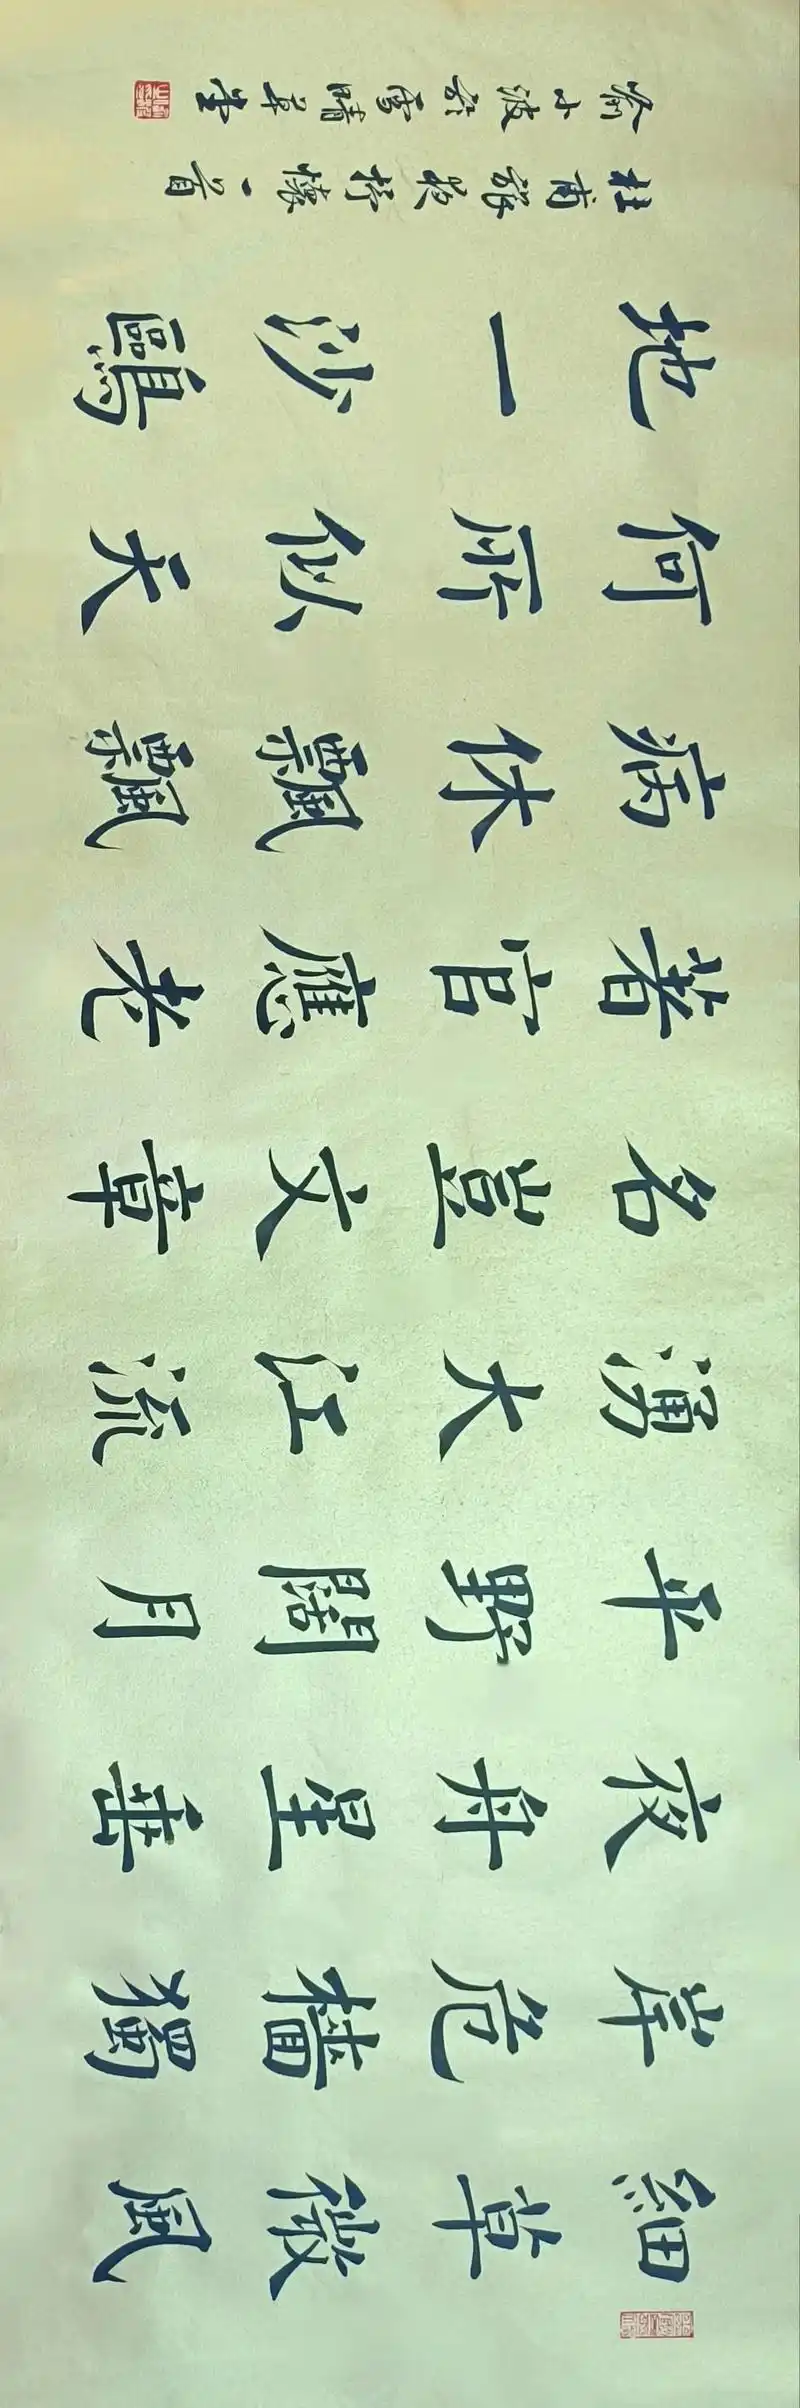 細草微風
岸危檣獨
夜舟星垂
平野闊月
湧大江流
名豈文章
著官應老
病休飄飄
何所似天
地一沙鷗
杜甫旅夜抒懷一首
喻小波於雪晴草堂